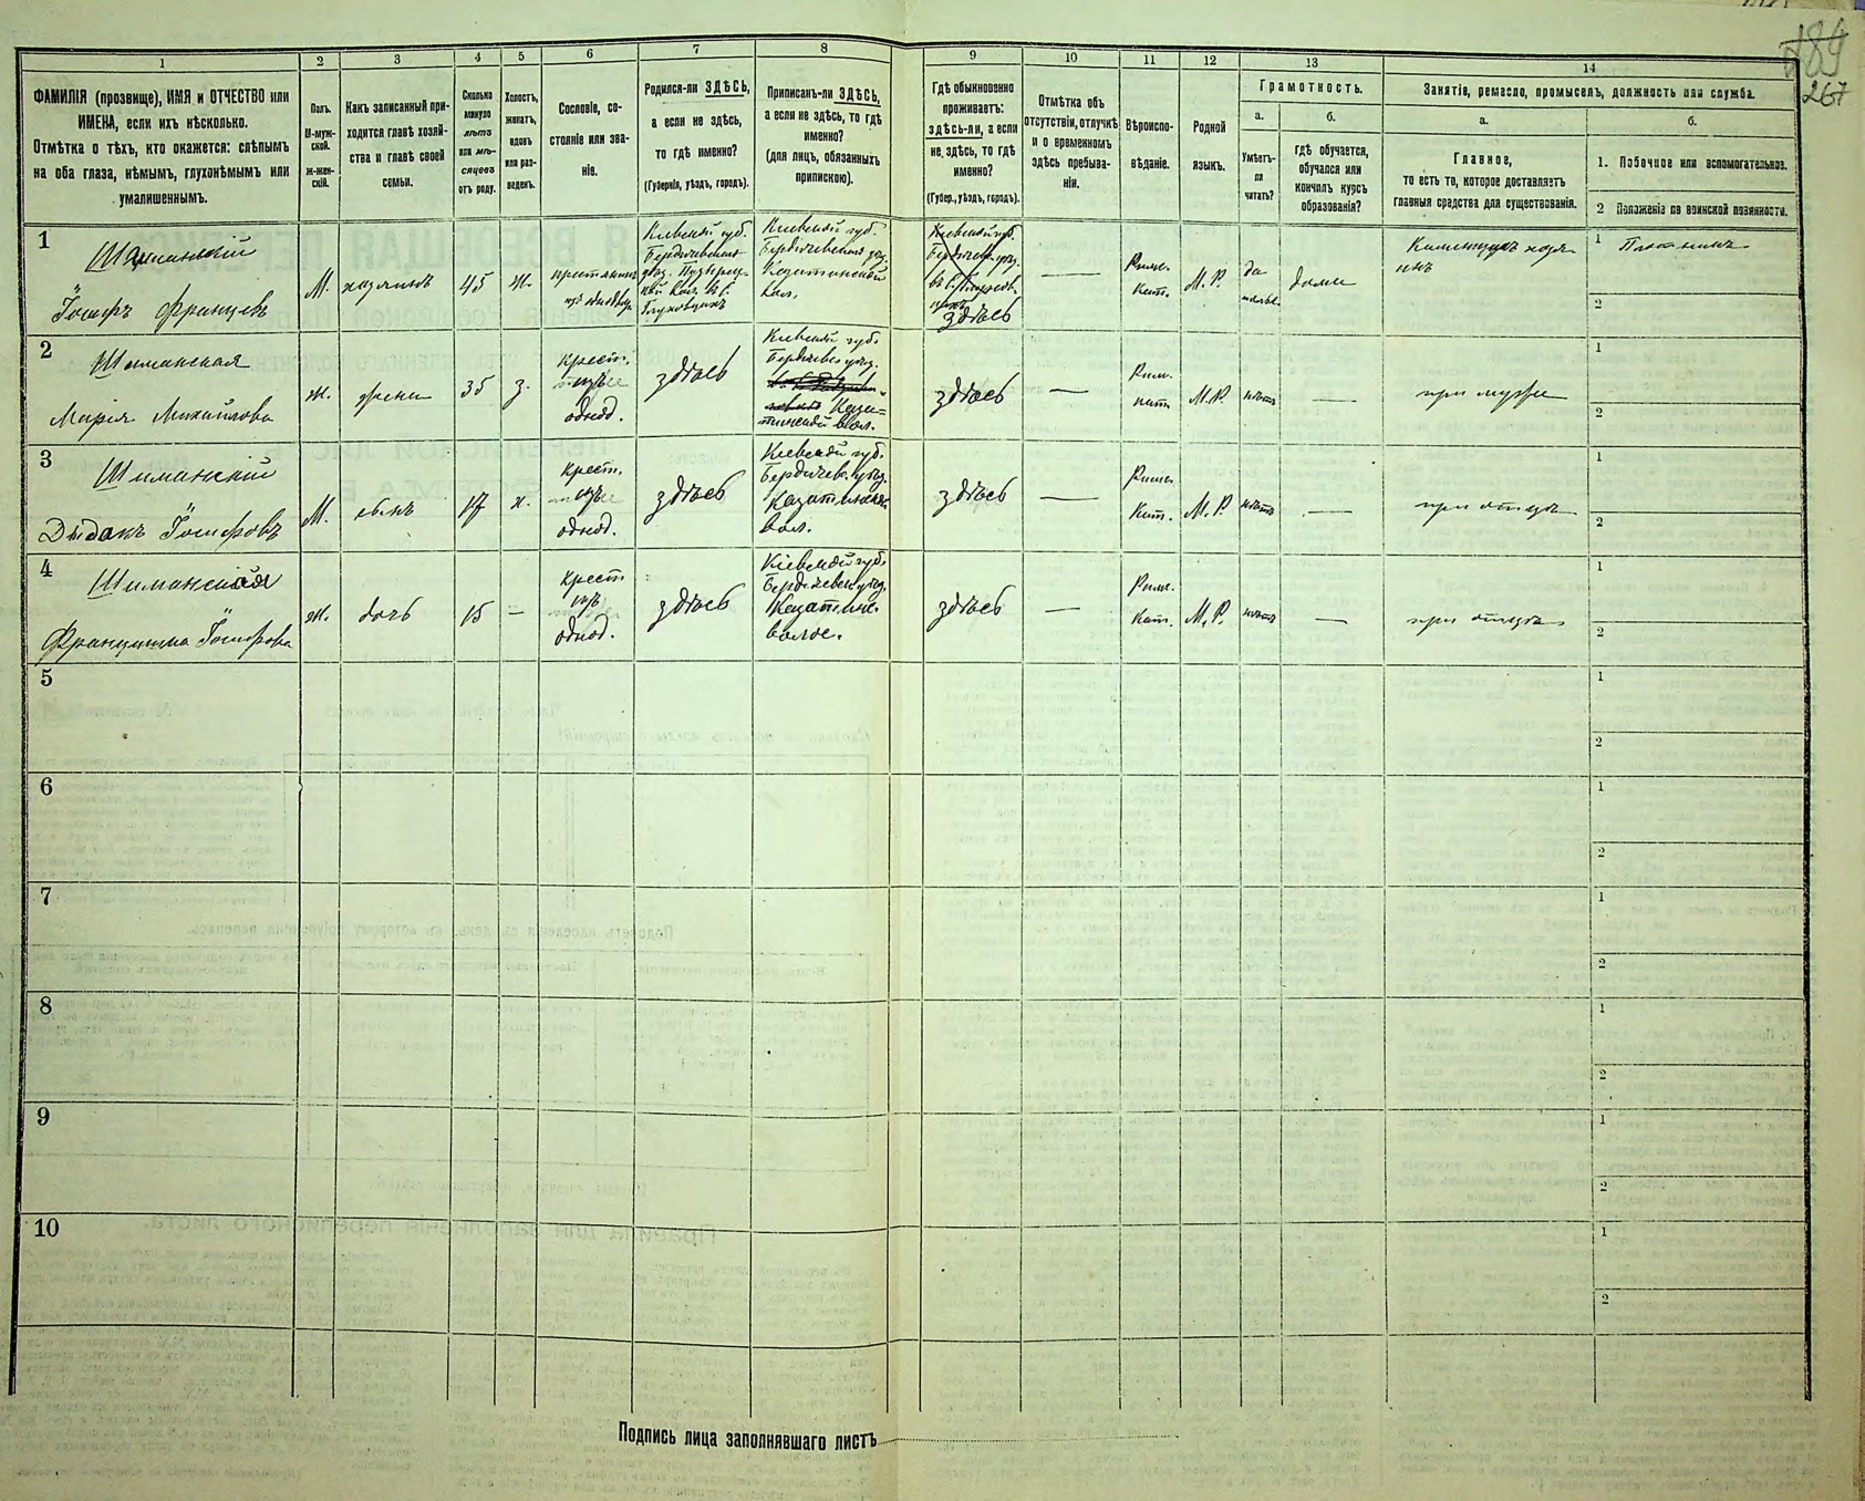 189
267
1
2
3
4
5
6
7
8
9
10
11
12
13
14
ФАМИЛІЯ (прозвище), ИМЯ и ОТЧЕСТВО или
ИМЕНА, если ихъ нѣсколько.
Отмѣтка о тѣхъ, кто окажется: слѣпымъ
на оба глаза, нѣмымъ, глухонѣмымъ или
умалишеннымъ.
Полъ.
М-муж-
ской.
Ж-жен-
скій.
Какъ записанный при-
ходится главѣ хозяй-
ства и главѣ своей
семьи.
Сколько
минуло
лѣтъ
или мѣ-
сяцевъ
отъ роду.
Холостъ,
женатъ,
вдовъ
или раз-
веденъ.
Сословіе, со-
стояніе или зва-
ніе.
Родился-ли ЗДѢСЬ,
а если не здѣсь,
то гдѣ именно?
(Губернія, уѣздъ, городъ).
Приписанъ-ли ЗДѢСЬ,
а если не здѣсь, то гдѣ
именно?
(для лицъ, обязанныхъ
припискою).
Гдѣ обыкновенно
проживаетъ:
здѣсь-ли, а если
не здѣсь, то гдѣ
именно?
(Губер., уѣздъ, городъ).
Отмѣтка объ
отсутствіи, отлучкѣ
и о временномъ
здѣсь пребыва-
ніи.
Вѣроиспо-
вѣданіе.
Родной
языкъ.
Грамотность.
а.
б.
Умѣетъ-
ли
читать?
гдѣ обучается,
обучался или
кончилъ курсъ
образованія?
Занятія, ремесло, промыселъ, должность или служба.
а.
б.
Главное,
то есть то, которое доставляетъ
главныя средства для существованія.
1. Побочное или вспомогательное.
2 Положеніе по воинской повинности.
1
Шиманьскій
Іосифъ Францевъ
М.
хозяинъ
45
ж.
крестьянинъ
изъ однодвор.
Кіевской губ.
Бердичевскаго
уѣзд.
Глуховцахъ
Кіевской губ.
Бердичевскаго уѣз.
Казатинской
вол.
Кіевской губ.
Бердичев. уѣзд.
здѣсь
—
Римс.
Кат.
М. Р.
да
дома
1
Плотникъ
2
2
Шиманская
Марія Михайлова
ж.
жена
35
з.
Крест.
изъ
однод.
здѣсь
Кіевской губ.
Бердичев. уѣзд.
Каза-
тинской вол.
здѣсь
—
Рим.
кат.
М. Р.
нѣтъ
—
при мужѣ
1
2
3
Шиманскій
Дидакъ Іосифовъ
М.
сынъ
17
х.
Крест.
изъ
однод.
здѣсь
Кіевской губ.
Бердичев. уѣзд.
Казатинской
вол.
здѣсь
—
Римс.
Кат.
М. Р.
нѣтъ
—
при отцѣ
1
2
4
Шиманская
Францишка Іосифова
ж.
дочь
15
—
Крест.
изъ
однод.
здѣсь
Кіевской губ.
Бердичев. уѣзд.
Казатинс.
волос.
здѣсь
—
Римс.
Кат.
М. Р.
нѣтъ
—
при отцѣ
1
2
5
1
2
6
1
2
7
1
2
8
1
2
9
1
2
10
1
2
Подпись лица заполнявшаго листъ